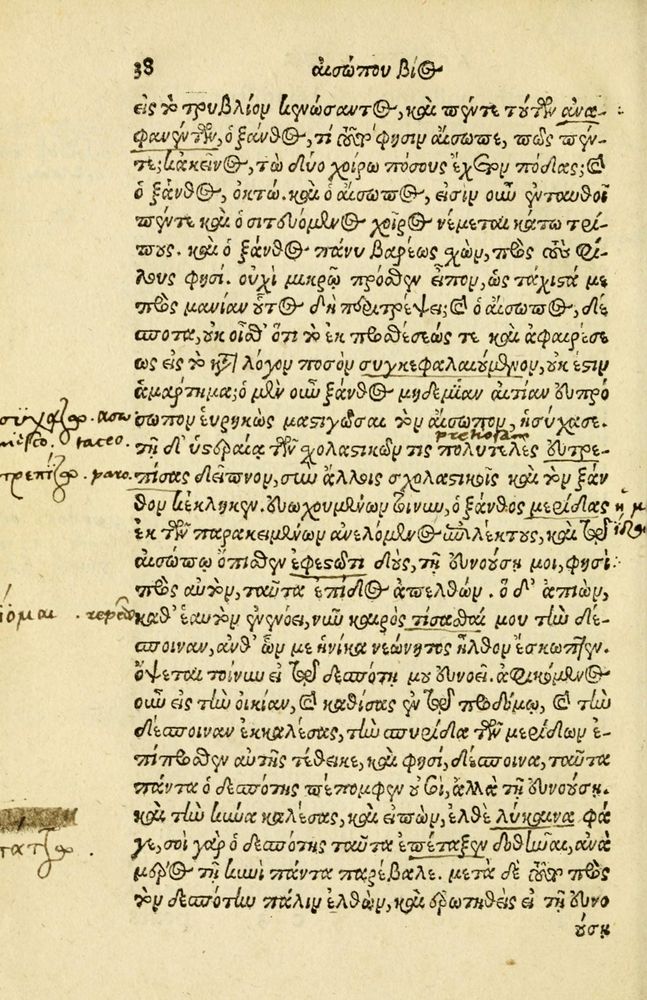 38 αἰσώπου βίος
εἰς τὸ τρυβλίον κενώσαντος, καὶ πέντε τούτων ἀνα-
φανέντων, ὁ ξάνθος, τί τοῦτ' φησιν αἴσωπε, πῶς πέν-
τε; κἀκεῖνος, τὼ δύο χοίρω πόσους ἔχετον πόδας; καὶ
ὁ ξάνθος, ὀκτώ. καὶ ὁ αἴσωπος, εἰσὶν οὖν ἐνταυθοῖ
πέντε καὶ ὁ σιτευόμενος χοῖρος νέμεται κάτω τρί-
πους. καὶ ὁ ξάνθος πάνυ βαρέως σχὼν, πρὸς τοὺς φί-
λους φησί. οὐχὶ μικρῷ πρόσθεν εἶπον, ὡς τάχιστά με
πρὸς μανίαν οὗτος δὴ περιτρέψει; καὶ ὁ αἴσωπος, δέ-
σποτα, οὐκ οἶσθ' ὅτι τὸ ἐκ προσθέσεώς τε καὶ ἀφαιρέσε
ως εἰς τὸ κατὰ λόγον ποσὸν συγκεφαλαιούμενον, οὐκ ἔστιν
ἁμάρτημα; ὁ μὲν οὖν ξάνθος μηδεμίαν αἰτίαν εὐπρό
σωπον εὑρηκὼς μαστιγῶσαι τὸν αἴσωπον, ἡσύχασε.
τῇ δ' ὑστεραίᾳ τῶν σχολαστικῶν τις πολυτελὲς εὐτρε-
πίσας δεῖπνον, σὺν ἄλλοις σχολαστικοῖς καὶ τὸν ξάν
θον κέκληκεν. εὐωχουμένων τοίνυν, ὁ ξάνθος μερίδας
ἐκ τῶν παρακειμένων ἀνελόμενος ἐπιλέκτους, καὶ τῷ
αἰσώπῳ ὄπισθεν ἐφεστῶτι δοὺς, τῇ εὐνούσῃ μοι, φησὶ
πρὸς αὐτὸν, ταῦτα ἐπίδος ἀπελθών. ὁ δ' ἀπιὼν,
καθ' ἑαυτὸν ἐνενόει, νῦν καιρὸς τίσασθαί μου τὴν δέ-
σποιναν, ἀνθ' ὧν με ἡνίκα νεώνητος ἦλθον ἔσκωπτεν.
ὄψεται τοίνυν εἰ τῷ δεσπότῃ μου εὐνοεῖ. ἀφικόμενος
οὖν εἰς τὴν οἰκίαν, καὶ καθίσας ἐν τῷ προδόμῳ, καὶ τὴν
δέσποιναν ἐκκαλέσας, τὴν σπυρίδα τῶν μερίδων ἔ-
μπροσθεν αὐτῆς τέθεικε, καὶ φησὶ, δέσποινα, ταῦτα
πάντα ὁ δεσπότης πέπομφεν οὐ σοὶ, ἀλλὰ τῇ εὐνούσῃ.
καὶ τὴν κύνα καλέσας, καὶ εἰπὼν, ἐλθὲ λύκαινα φά
γε, σοὶ γὰρ ὁ δεσπότης ταῦτα ἐπέταξεν δοθῆναι, ἀνὰ
μέρος τῇ κυνὶ πάντα παρέβαλε. μετὰ δὲ τοῦτο πρὸς
τὸν δεσπότην πάλιν ἐλθὼν, καὶ ἐρωτηθεὶς εἰ τῇ εὐνο
ούσῃ
taceo.